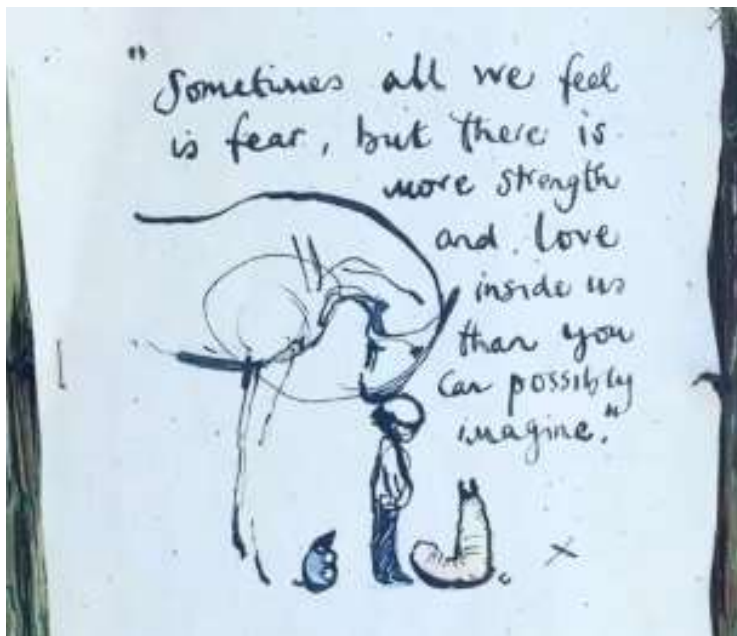 "Sometimes all we feel
is fear, but there is
more strength
and love
inside us
than you
can possibly
imagine."
x